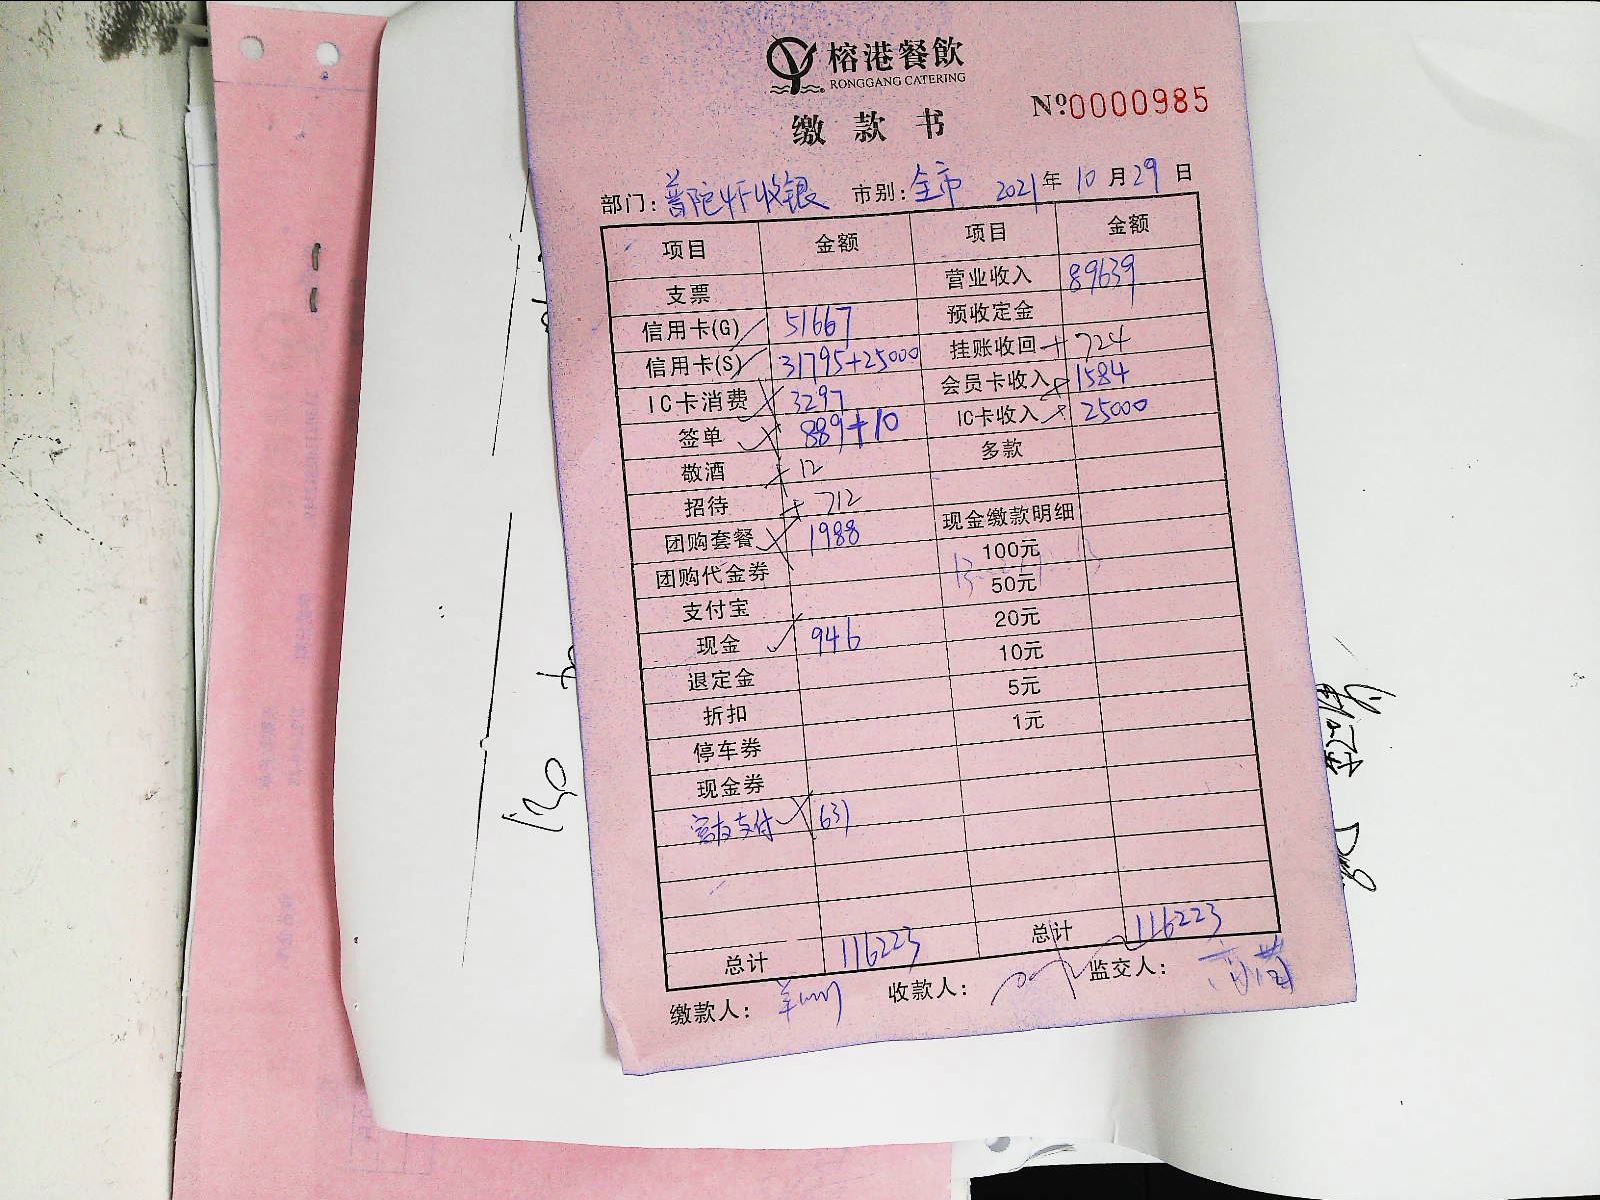 榕港餐飲
RONGGANG CATERING
№0000985
缴款书
部门: 普陀4F收银 市别: 全市 2021年10月29日
项目 金额 项目 金额
支票 营业收入 89639
信用卡(G) 51667 预收定金
信用卡(S) 31795+25000 挂账收回 724
IC卡消费 3297 会员卡收入 1584
签单 889+10 IC卡收入 25000
敬酒 12 多款
招待 712
团购套餐 1988 现金缴款明细
团购代金券 100元
支付宝 50元
现金 946 20元
退定金 10元
折扣 5元
停车券 1元
现金券
支付 631
总计 116223 总计 116223
缴款人: 收款人: 监交人: